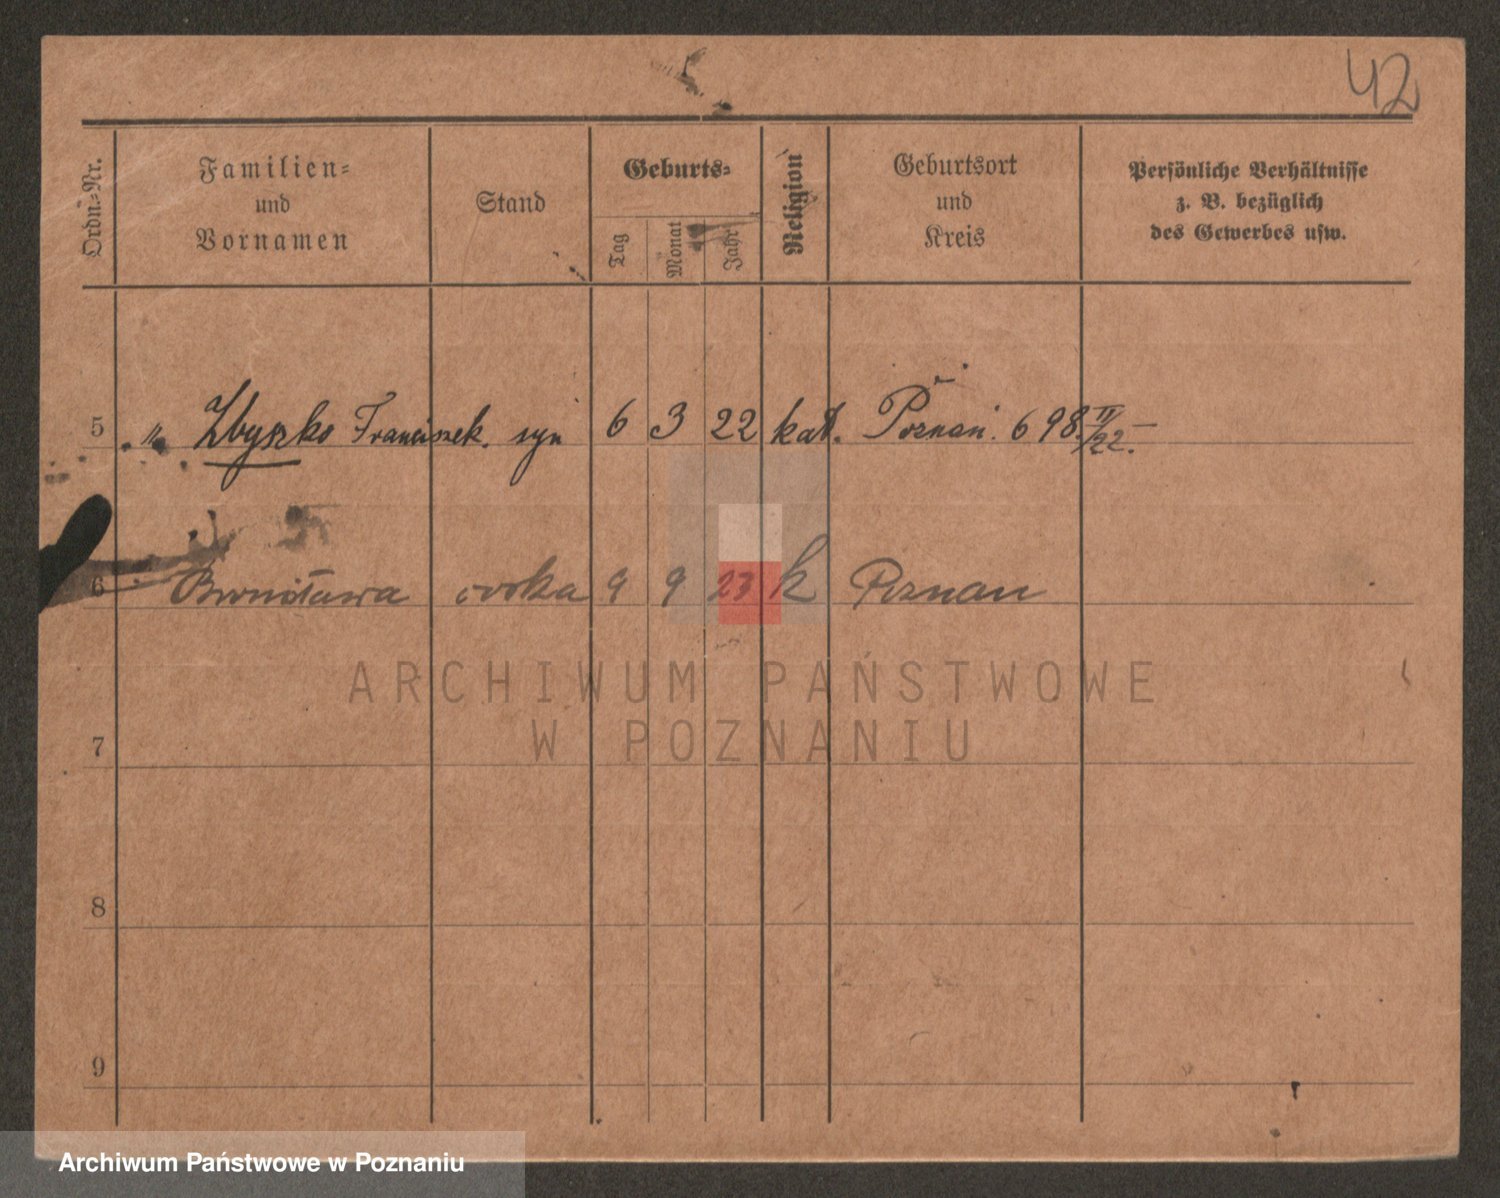 42
Ordn.-Nr.
Familien-
und
Vornamen
Stand
Geburts-
Tag
Monat
Jahr
Religion
Geburtsort
und
Kreis
Persönliche Verhältnisse
z. B. bezüglich
des Gewerbes usw.
5 " Zbyszko Franciszek. syn 6 3 22 kat. Poznań. 698 II/22.
6 Bronisława córka 9 9 23 k Poznan
ARCHIWUM PAŃSTWOWE
W POZNANIU
7
8
9
Archiwum Państwowe w Poznaniu